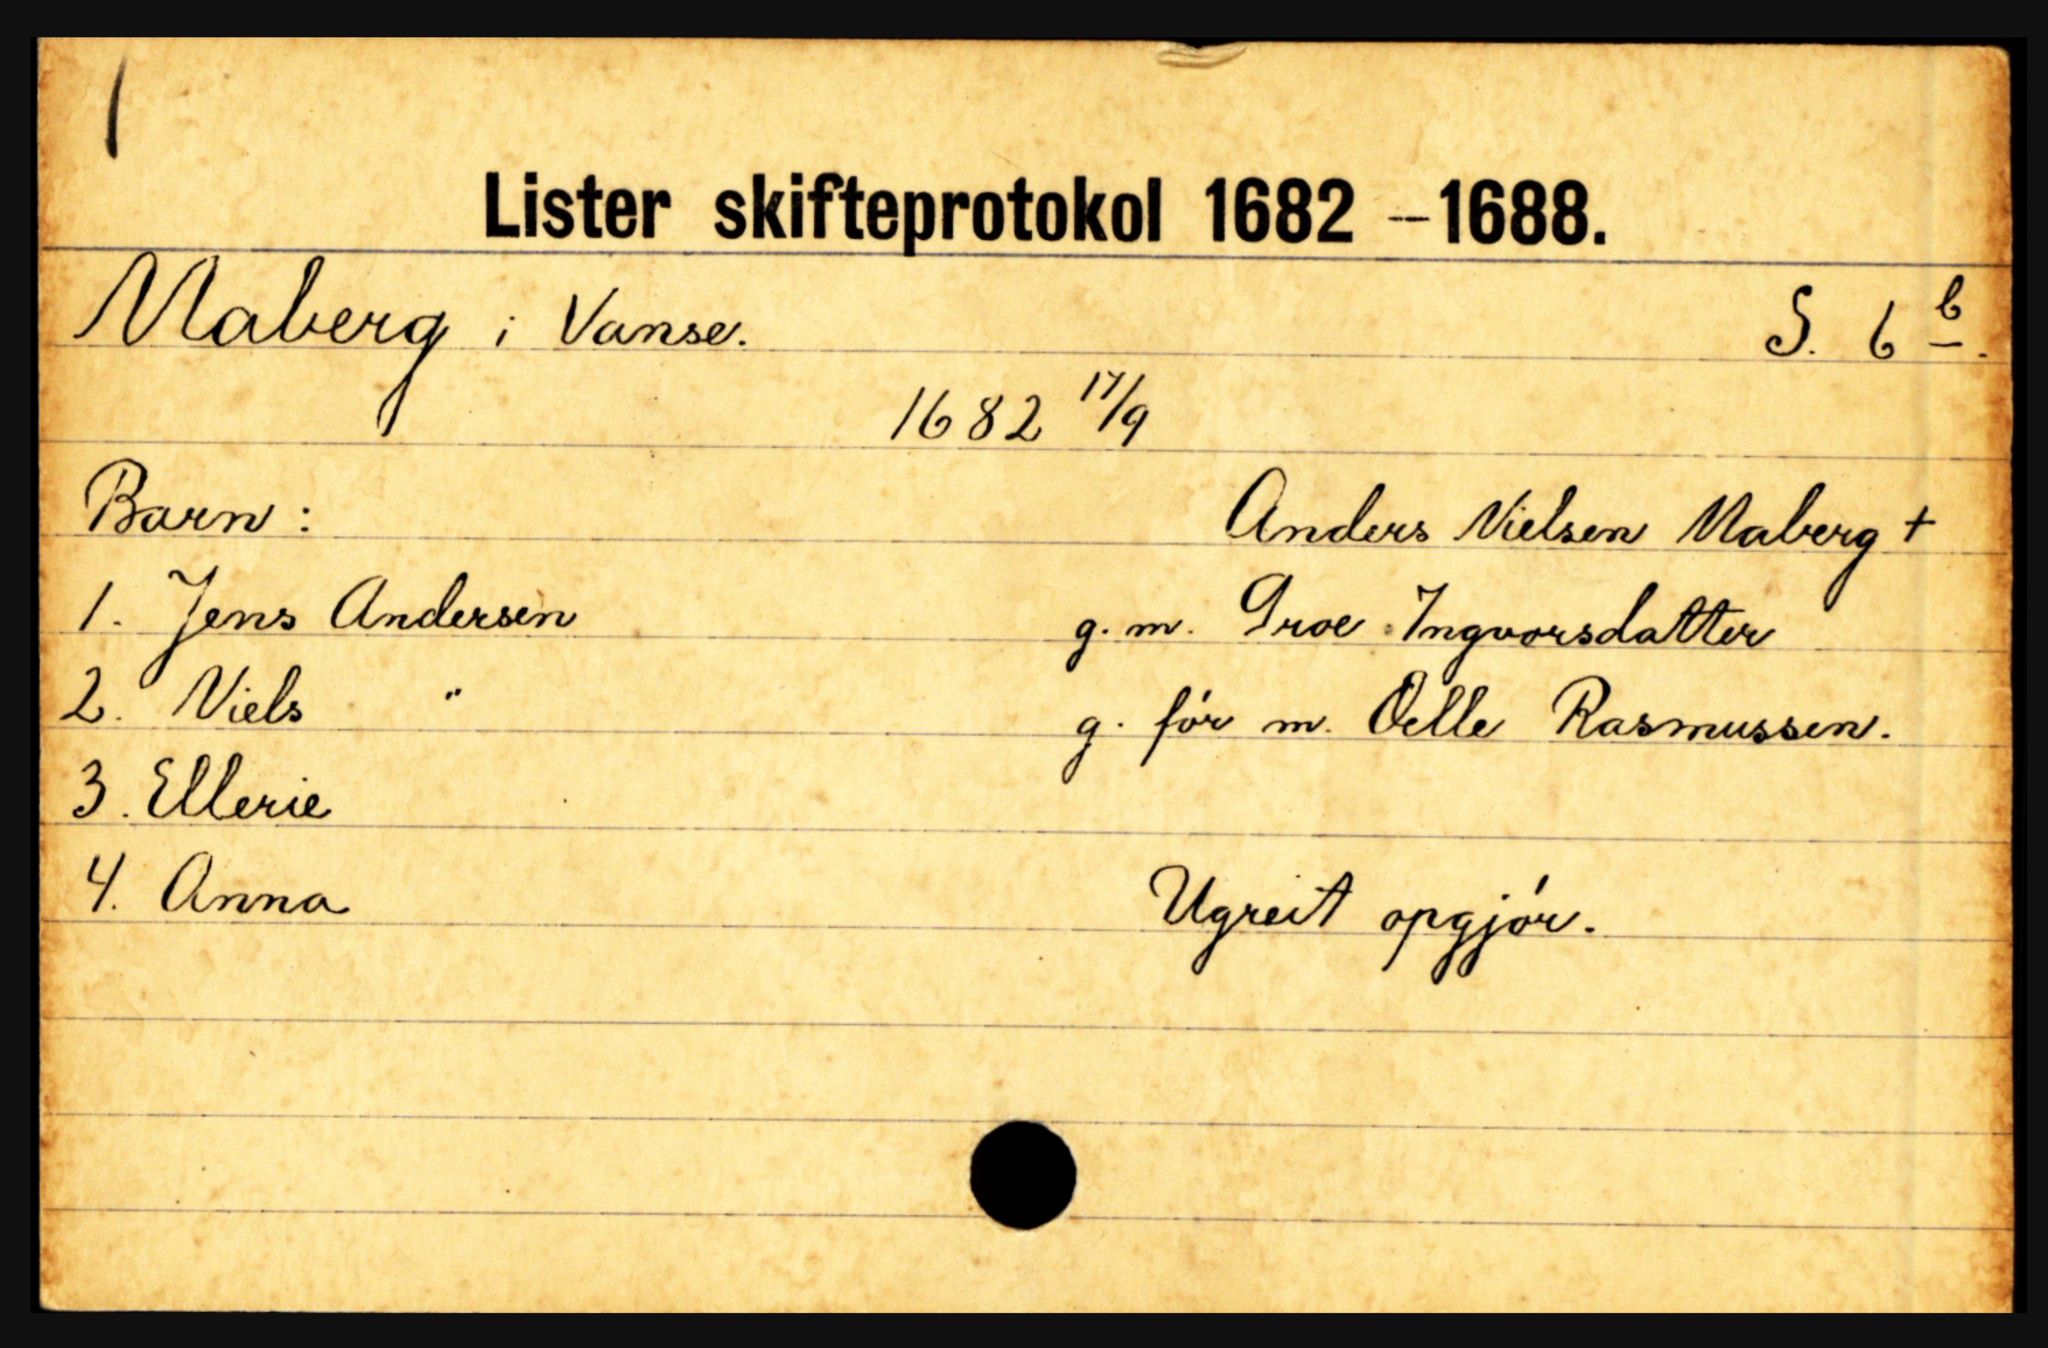 1
Lister skifteprotokol 1682 – 1688.
Maberg i Vanse. S. 6 b.
1682 17/9
Barn: Anders Nielsen Maberg +
1. Jens Andersen g. m. Groe Ingvorsdatter
2. Niels " g. før m. Oelle Rasmussen.
3. Ellerie
4. Anna Ugreit opgjør.